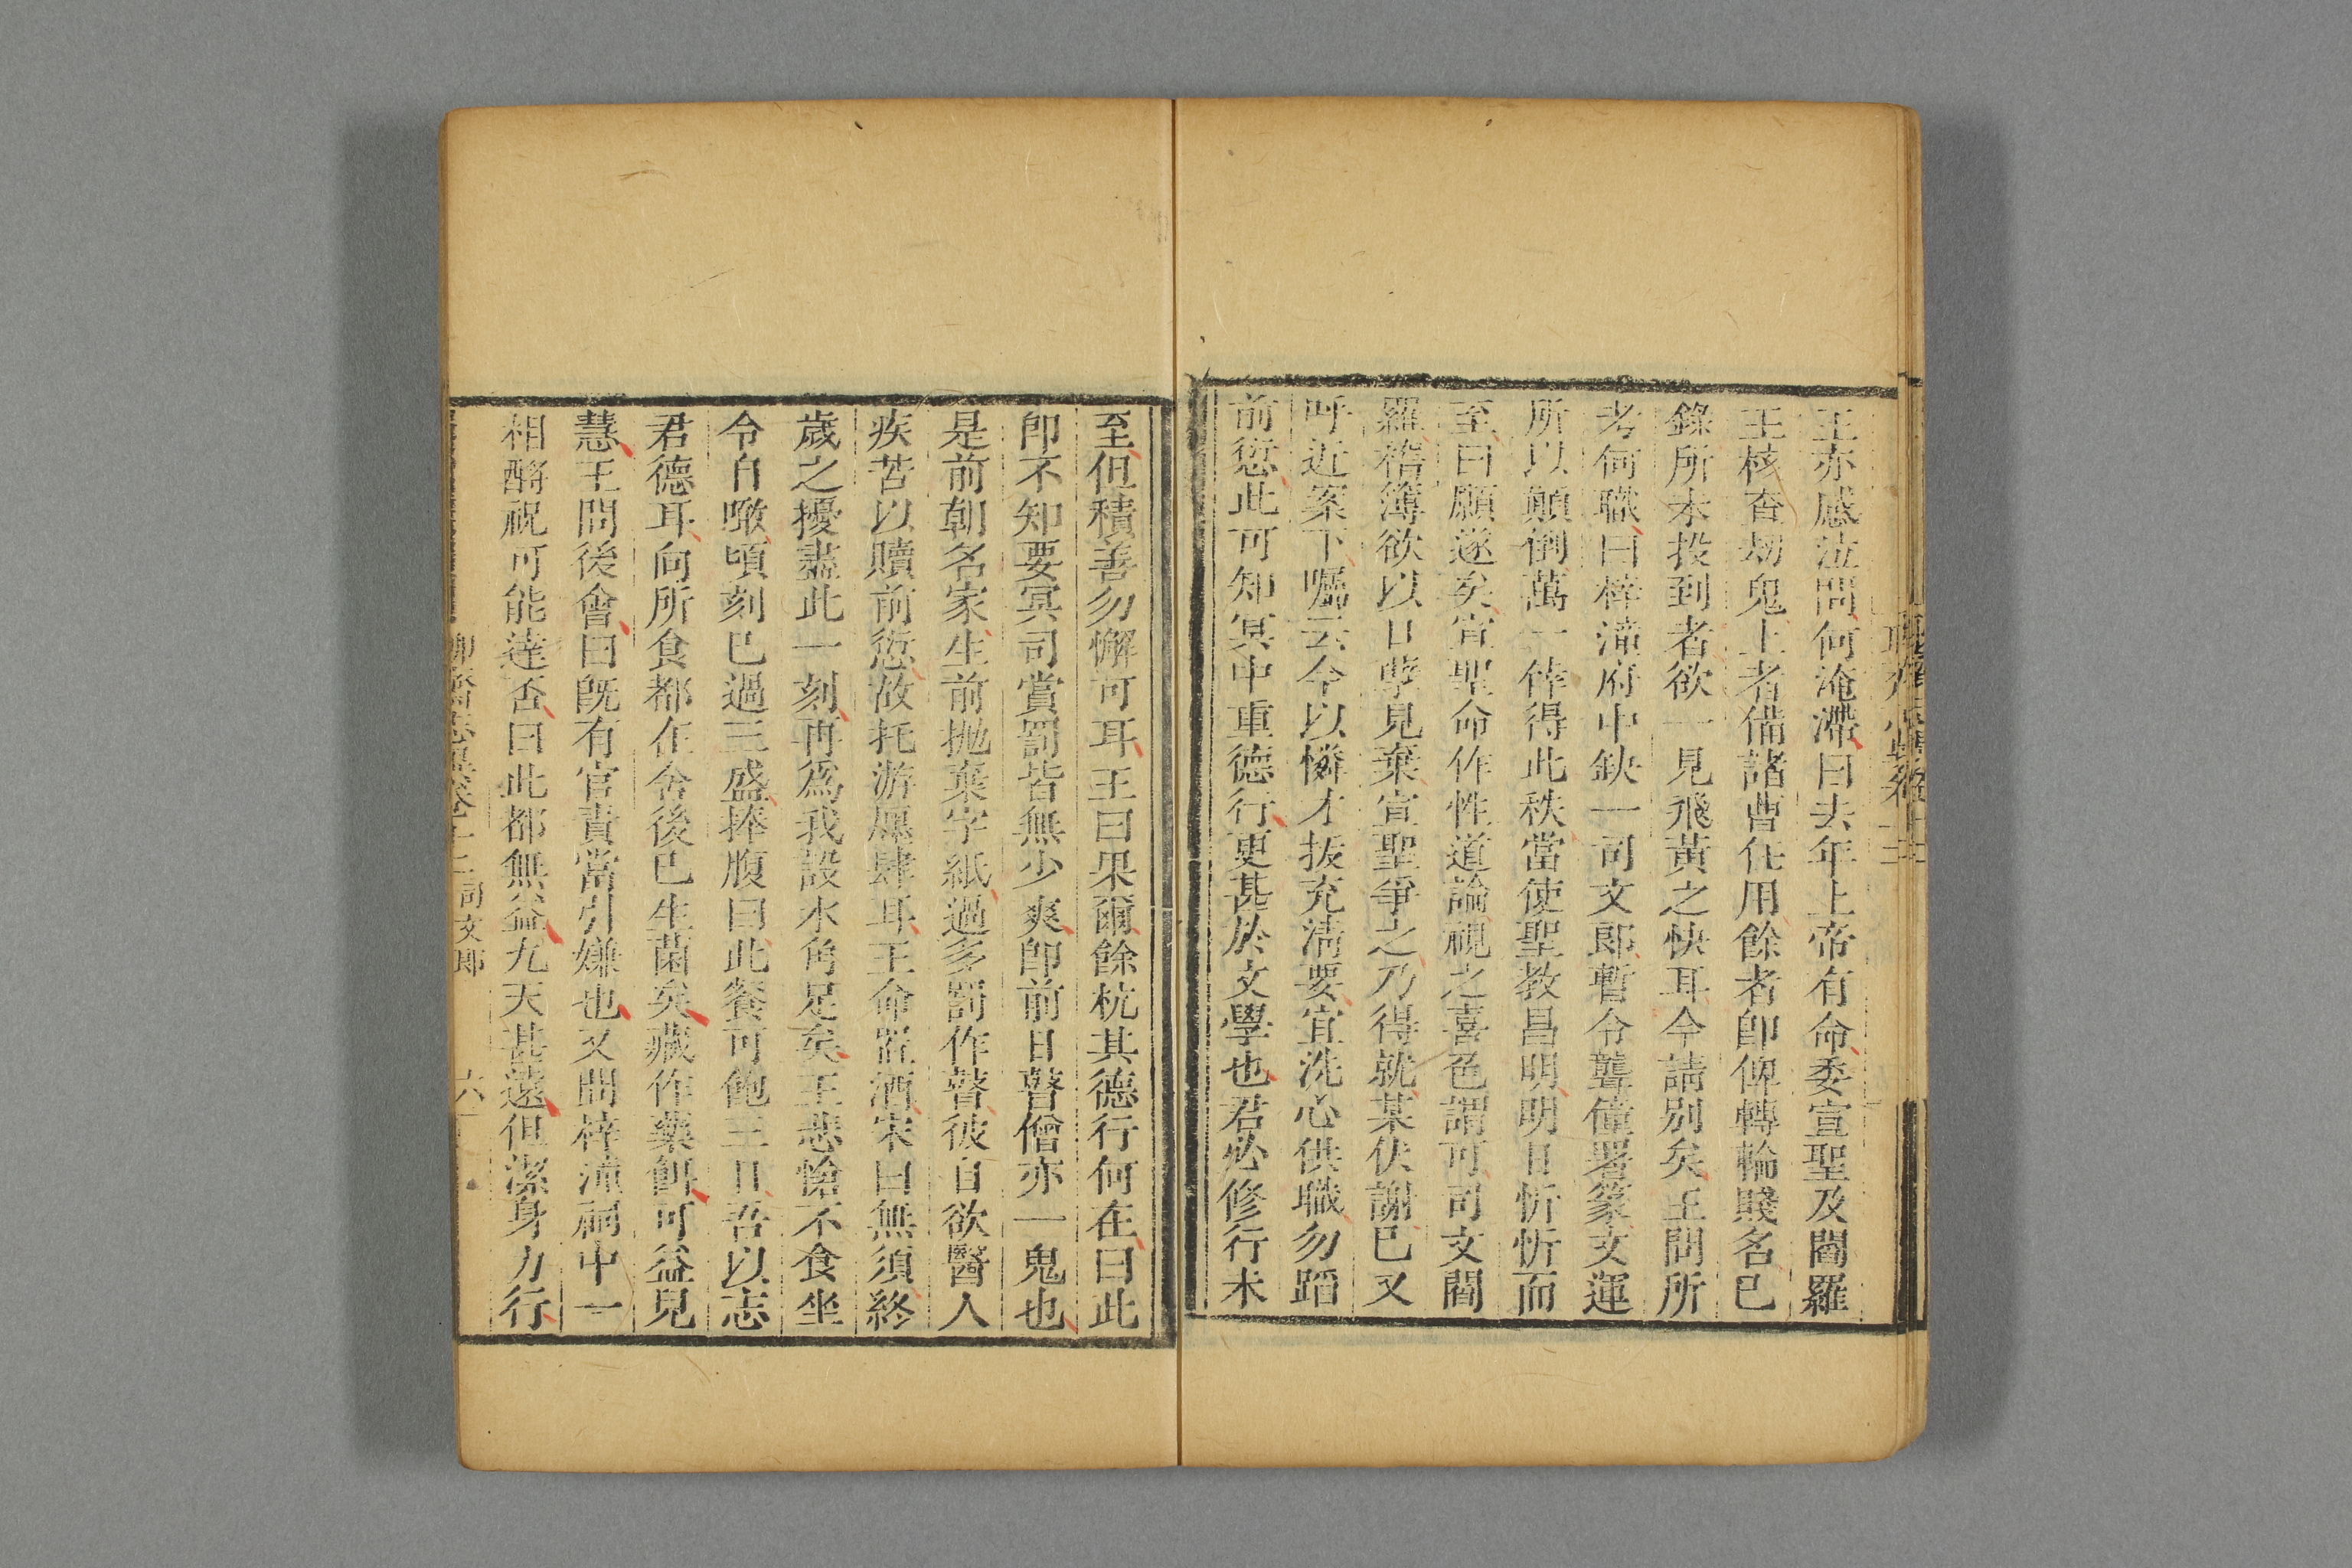 王亦感泣問何淹滯曰去年上帝有命委宣聖及閻羅
王核查刼鬼上者備諸曹任用餘者卽俾轉輪賤名已
錄所未投到者欲一見飛黃之快耳今請別矣王問所
考何職曰梓潼府中缺一司文郎暫令聾僮署篆文運
所以顛倒萬一倖得此秩當使聖教昌明明日忻忻而
至曰願遂矣宣聖命作性道論視之喜色謂可司文閻
羅稽簿欲以口孽見棄宣聖爭之乃得就某伏謝已又
呼近案下囑云今以憐才拔充清要宜洗心供職勿蹈
前愆此可知冥中重德行更甚於文學也君必修行未
至但積善勿懈可耳王曰果爾餘杭其德行何在曰此
卽不知要冥司賞罰皆無少爽卽前日瞽僧亦一鬼也
是前朝名家生前拋棄字紙過多罰作瞽彼自欲醫人
疾苦以贖前愆故托游廛肆耳王命置酒宋曰無須終
歲之擾盡此一刻再爲我設水角足矣王悲愴不食坐
令自噉頃刻已過三盛捧腹曰此餐可飽三日吾以志
君德耳向所食都在舍後已生菌矣藏作藥餌可益兒
慧王問後會曰旣有官責當引嫌也又問梓潼祠中一
相酹祝可能達否曰此都無益九天甚遠但潔身力行
司文郎
六